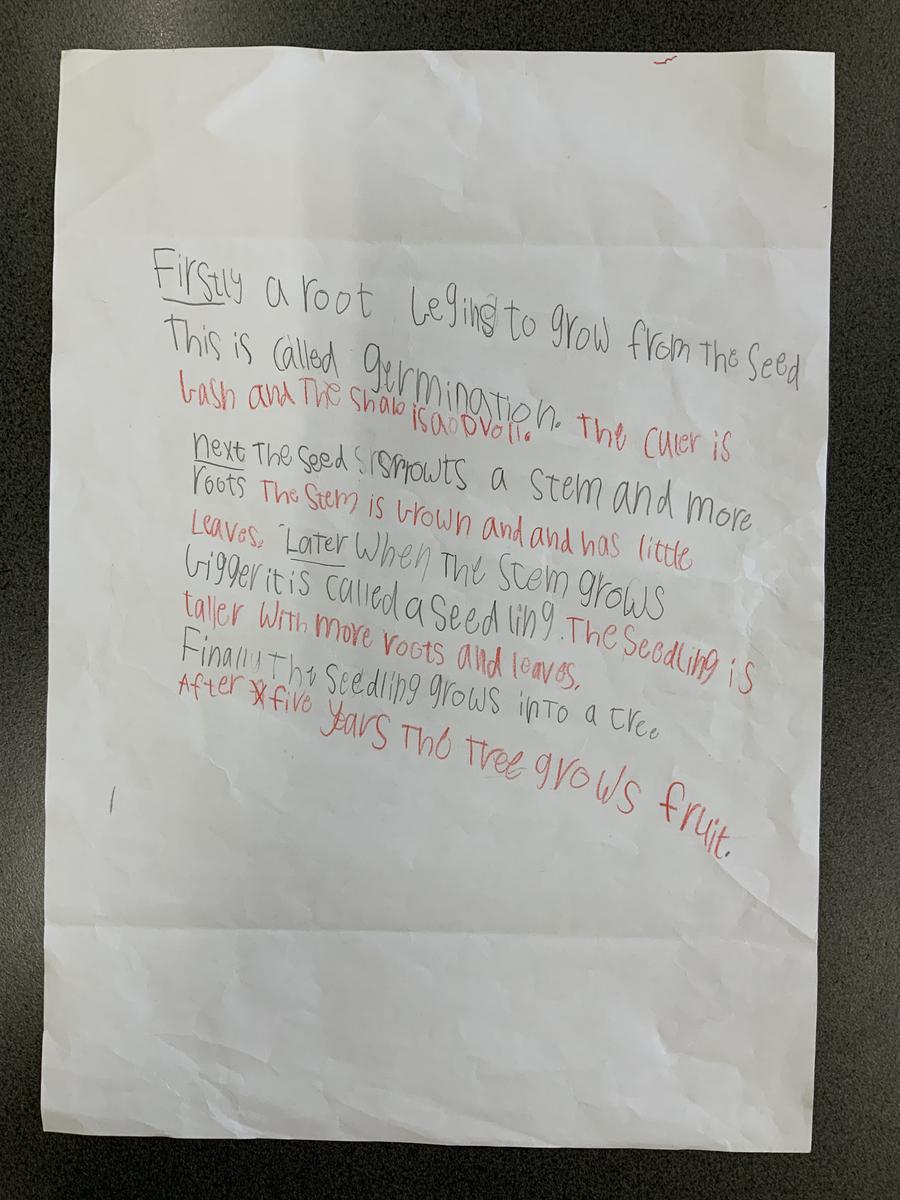 Firstly a root beging to grow from the seed
This is called germination. The culer is
bash and The shab is a ovoll.
next The seed sprowts a stem and more
roots The stem is brown and and has little
leaves. Later When The stem grows
bigger it is called a seedling. The seedling is
taller with more roots and leaves.
Finally The seedling grows into a tree.
After five years The tree grows fruit.